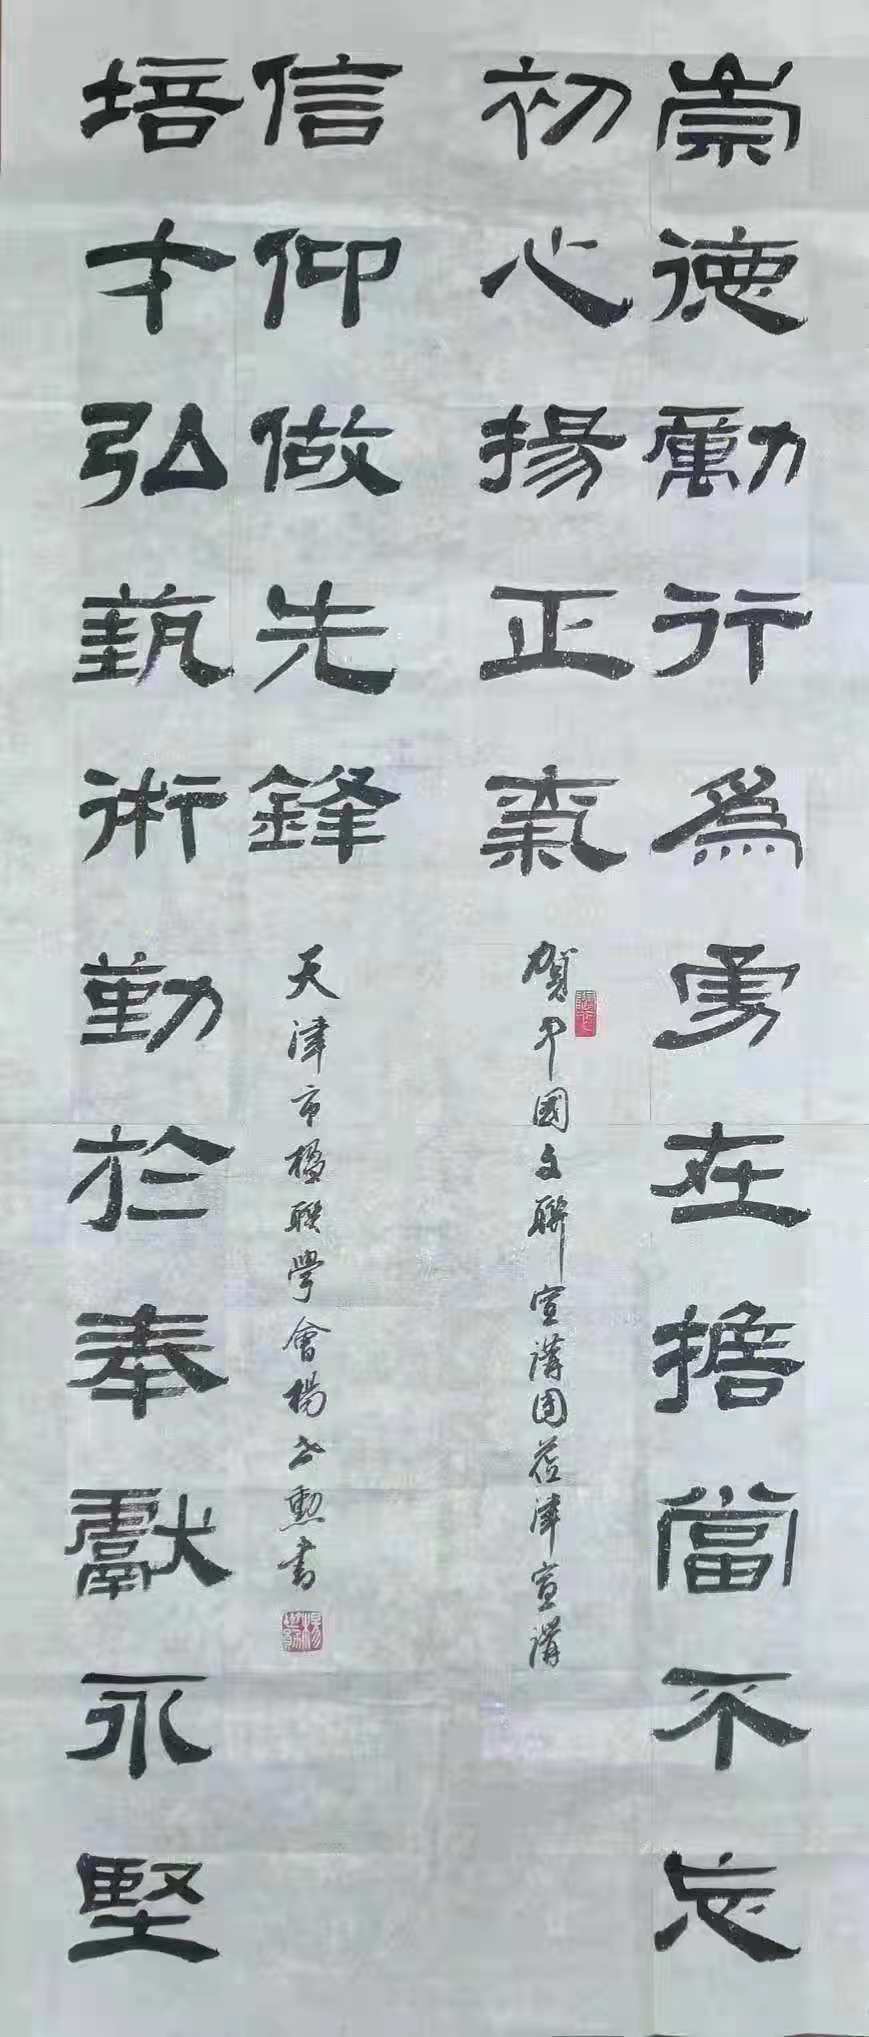 崇德勵行爲勇在擔當不忘
初心揚正氣
賀中國文聯宣講团莅津宣講
培才弘藝術勤於奉獻永堅
信仰做先鋒
天津市楹聯學會楊世勳書